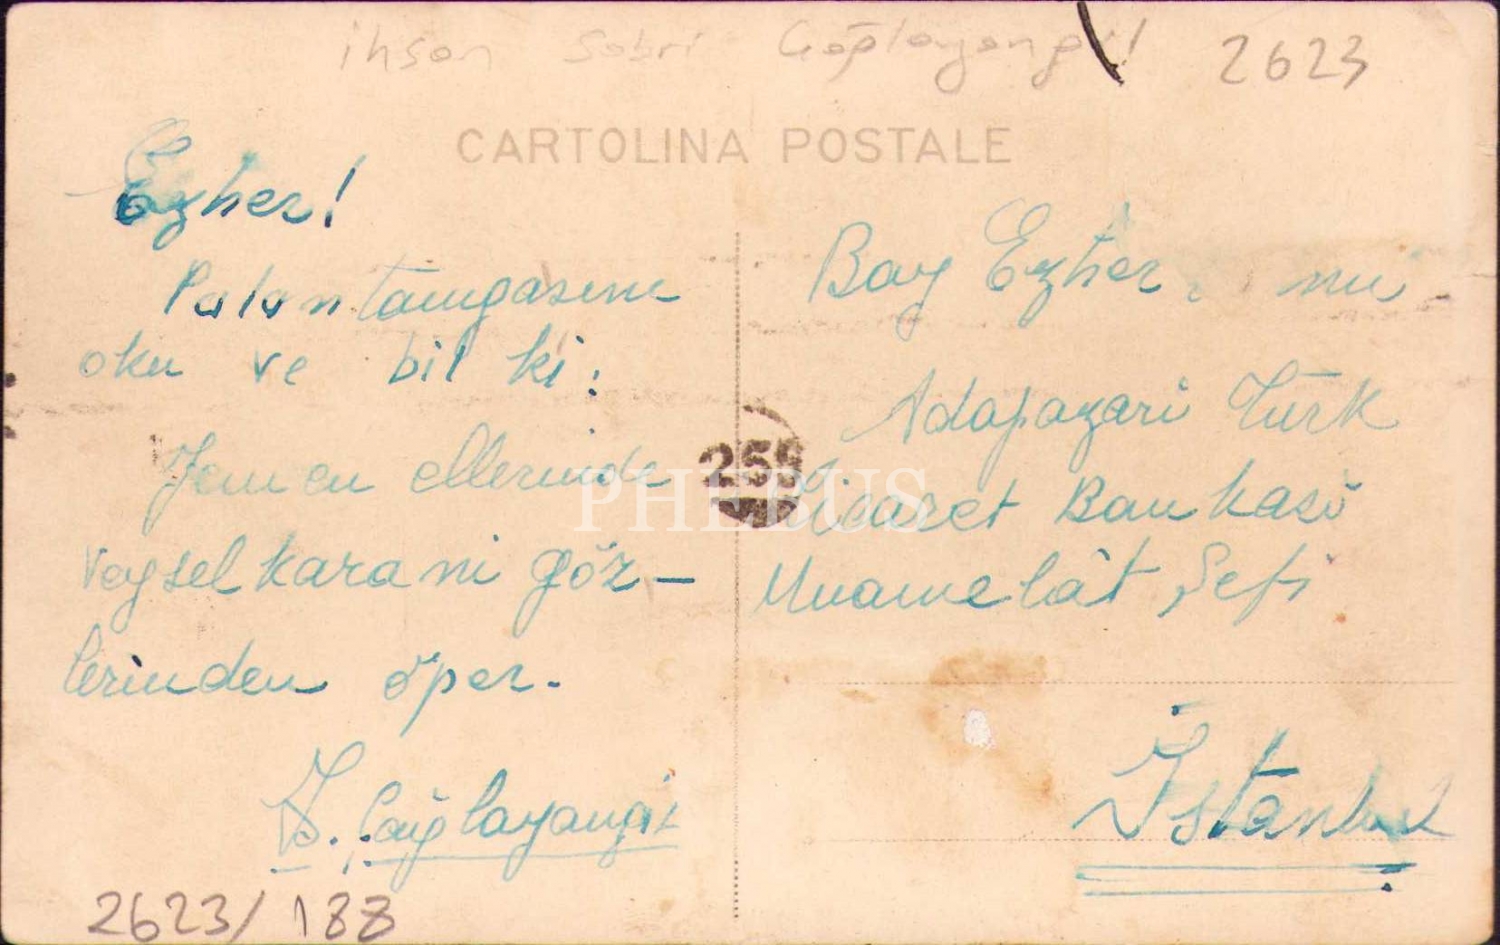 ihsan Sabri Çağlayangil
2623
CARTOLINA POSTALE
Ezher!
oku ve bil ki:
Yemen ellerinde
Veysel karani göz-
lerinden öper.
İ. S. Çağlayangil
2623/188
255
Bay Ezher
Adapazari Türk
Ticaret Bankası
Muamelât Şefi
İstanbul
PHEBUS